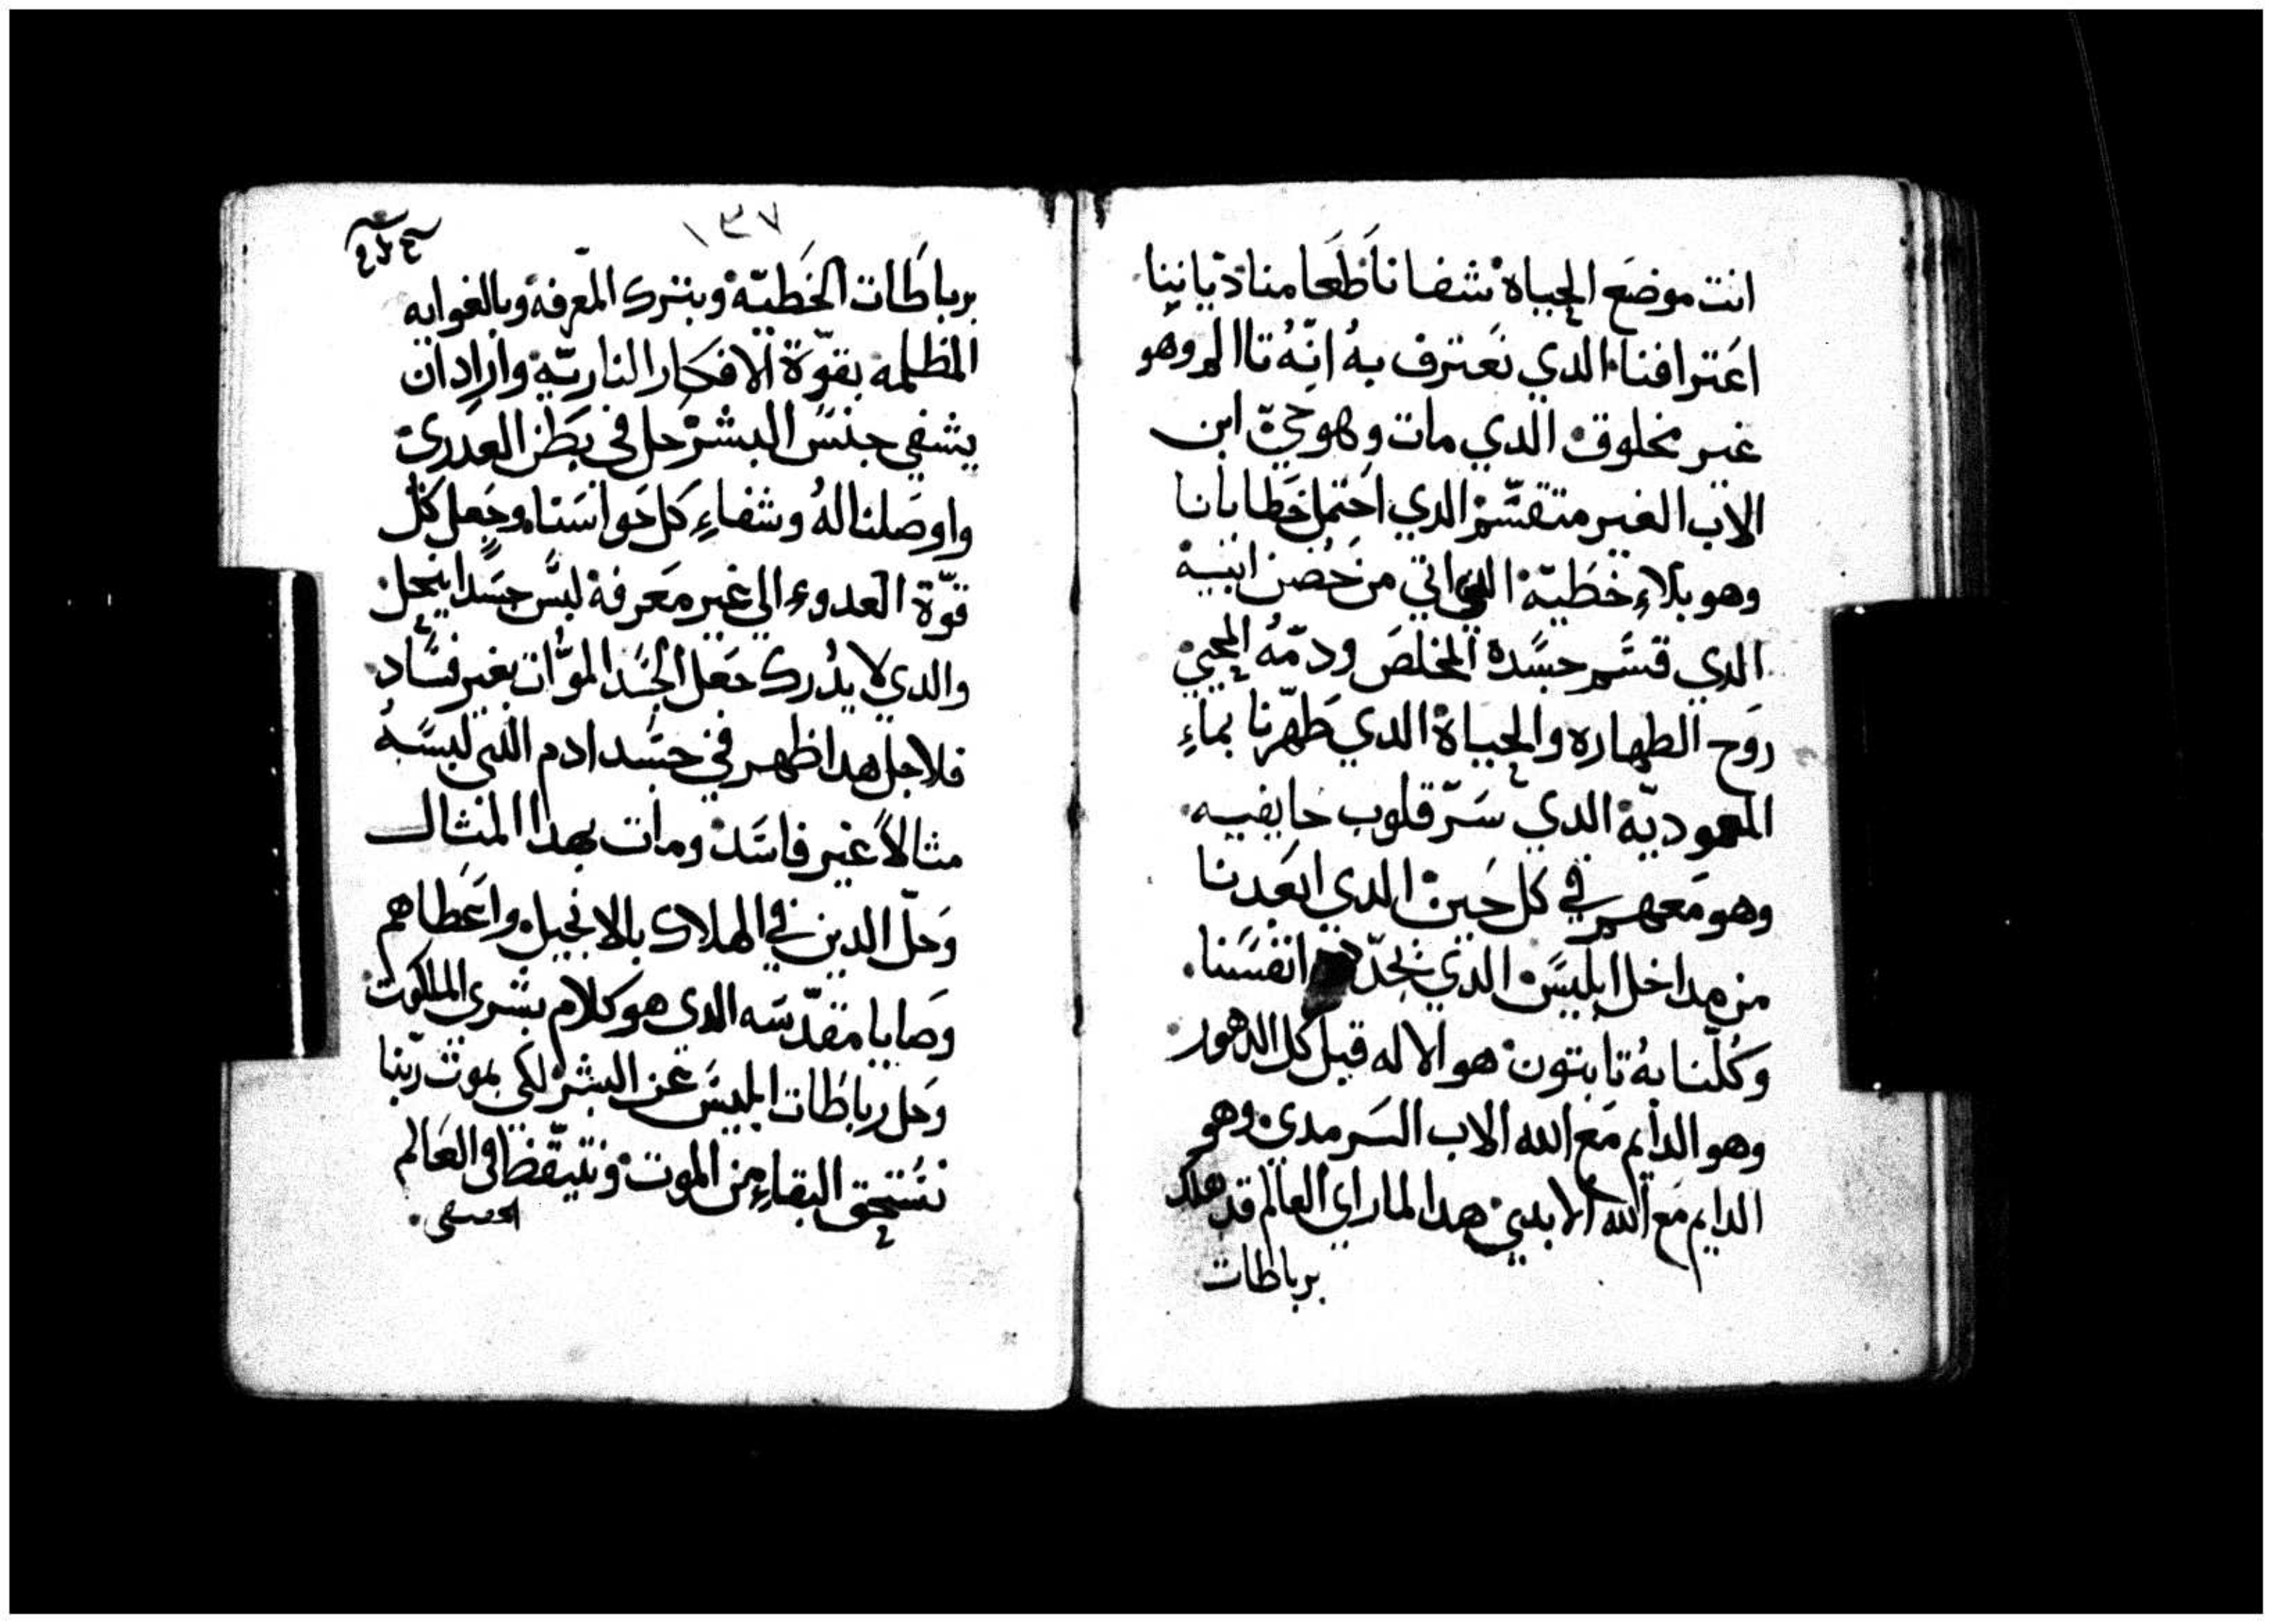 انت موضع الحياة شفانا طعامنا ديانينا
اعترافنا الدي نعترف به انّه تاالم وهو
غير مخلوق الدي مات وهو حيّ ابن
الاب الغير متقسّم الدي احتمل خطايانا
وهو بلاءِ خطيّة اتي من حضن ابيه
الدي قسم جسده المخلص ودمّهُ المحيي
روح الطهاره والحياة الدي طهّرنا بماءِ
المعموديّة الدي سرّ قلوب خايفيه
وهو معهم في كل حين الدي ابعدنا
من مداخل ابليس الدي يجدّد انفسنا
وكلّنا به تابتون هو الاله قبل كل الدهور
وهو الدايم مع الله الاب السرمدي وهو
الدايم مع الله الابدي هدا لما راي العالم قد هلك
برباطات
١٣٧
برباطات الخطيّة وبترك المعرفة وبالغوايه
المظلمه بقوّة الافكار الناريّة واراد ان
يشفي جنس البشر حل في بطن العدري
واوصلنا لهُ وشفاءِ كل حواسنا وجعل كل
قوّة العدوء الي غير معرفة لبس جسدا ينحل
والدي لا يدرك جعل الجسد الموّات بغير فساد
فلاجل هدا ظهر في جسد ادم الدي لبسهُ
مثالاً غير فاسد ومات بهدا المثال
وحلّ الدين في الهلاك بالانجيل واعطاهم
وصايا مقدّسه الدي هو كلام بشري الملكوت
وحل رباطات ابليس عن البشر لكي بموت ربّنا
نستحق البقاءِ من الموت ونتيقّظ في العالم